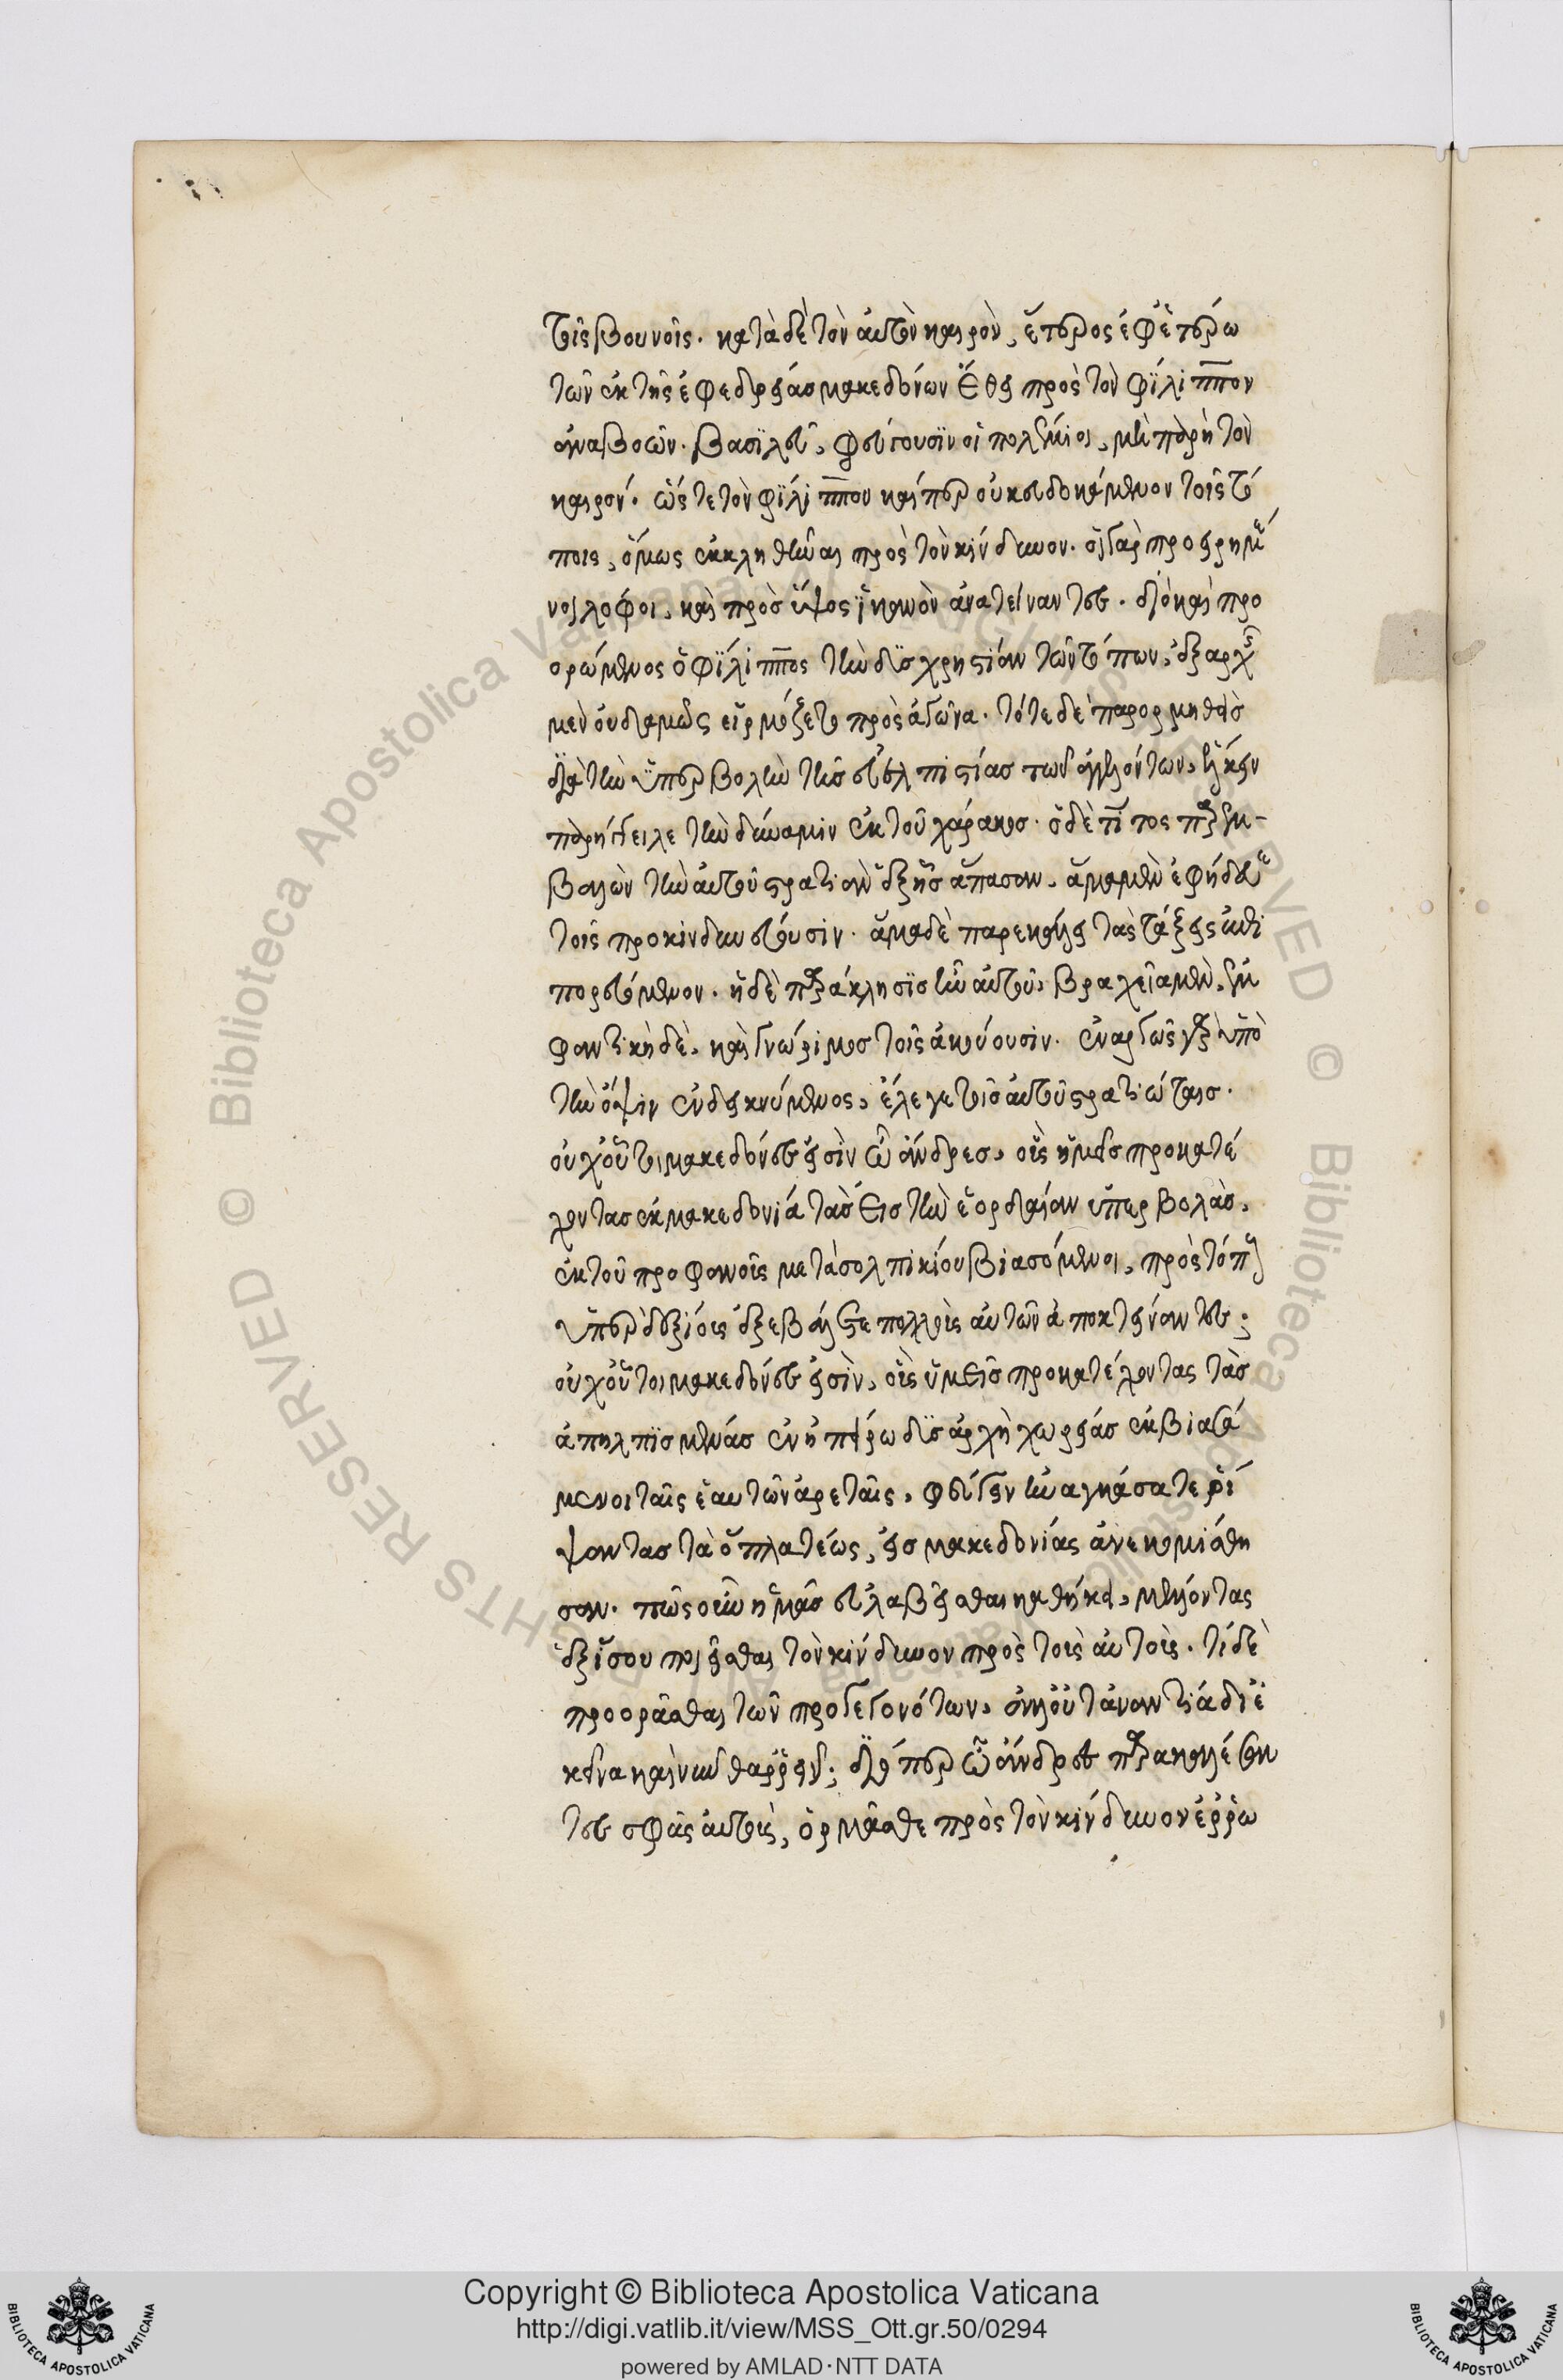 τοῖς βουνοῖς. κατὰ δὲ τὸν αὐτὸν καιρὸν, ἕτερος ἐφ' ἑτέρω
τῶν ἐκ τῆς ἐφεδρείας μακεδόνων ἔθει πρὸς τὸν φίλιππον
ἀναβοῶν. βασιλεῦ, φεύγουσιν οἱ πολέμιοι, μὴ παρῇ τὸν
καιρόν. ὥς τε τὸν φίλιππον καίπερ οὐκ εὐδοκούμενον τοῖς τό
ποις, ὅμως ἐκκληθῆναι πρὸς τὸν κίνδυνον. οἱ γὰρ προειρημέ
νοι λόφοι, καὶ πρὸς ὕψος ἱκανὸν ἀνατείναντες. διὸ καὶ προ
ορώμενος ὁ φίλιππος τὴν δυσχρηστίαν τῶν τόπων, ἐξαρχῆς
μὲν οὐδαμῶς εἱρμόζετο πρὸς ἀγῶνα. τότε δὲ παρορμηθεὶς
διὰ τὴν ὑπερβολὴν τῆς εὐελπιστίας τῶν ἀγγελόντων, ἕλκειν
παρήγγειλε τὴν δύναμιν ἐκ τοῦ χάρακος. ὁ δὲ τίτος παρεμ-
βαλὼν τὴν αὐτοῦ στρατιὰν ἑξῆς ἅπασαν, ἅμα μὲν ἐφήδρευε
τοῖς προκινδυνεύουσιν. ἅμα δὲ παρεκάλει τὰς τάξεις ἐπι
πορευόμενον. ἡ δὲ παράκλησις ἦν αὐτοῦ, βραχεῖα μὲν, ἐμ
φαντικὴ δὲ, καὶ γνώριμος τοῖς ἀκούουσιν. ἐναργῶς γὰρ ὑπὸ
τὴν ὄψιν ἐνδεικνύμενος, ἔλεγε τοῖς αὐτοῦ στρατιώταις.
οὐχ οὗτοι μακεδόνες εἰσὶν ὦ ἄνδρες, οἷς ἡμεῖς προκατέ
χοντας ἐκ μακεδονία τὰς εἰς τὴν ἑορδαίαν ὑπερβολὰς,
ἐκ τοῦ προφανοῖς μετὰ σολπικίου βιασόμενοι, πρὸς τόπους
ὑπερδεξίοις ἐξεβάλετε πολλοὺς αὐτῶν ἀποκτείναντες;
οὐχ οὗτοι μακεδόνες εἰσὶν, οἷς ὑμεῖς προκατέχοντας τὰς
ἀπηλπισμένας ἐν ἠπείρω δυσαρχὴ χωρείας ἐκβιασά
μενοι ταῖς ἑαυτῶν ἀρεταῖς, φεύγειν ἠναγκάσατε ῥί
ψαντας τὰ ὅπλα τέως, εἰς μακεδονίας ἀνεκομίσθη
σαν. πῶς οὖν ἡμᾶς εὐλαβεῖσθαι καθήκει, μέλλοντας
ἐξ ἴσου ποιεῖσθαι τὸν κίνδυνον πρὸς τοὺς αὐτοὺς. τί δὲ
προορᾶσθαι τῶν προγεγονότων, ἀλλ' οὐ τἀναντία δι' ἐ
κεῖνα καὶ νῦν θαρρεῖν; διόπερ ὦ ἄνδρες παρακαλέσαν
τες σφᾶς αὐτοὺς, ὁρμᾶσθε πρὸς τὸν κίνδυνον ἐρρω
Copyright © Biblioteca Apostolica Vaticana
http://digi.vatlib.it/view/MSS_Ott.gr.50/0294
powered by AMLAD·NTT DATA